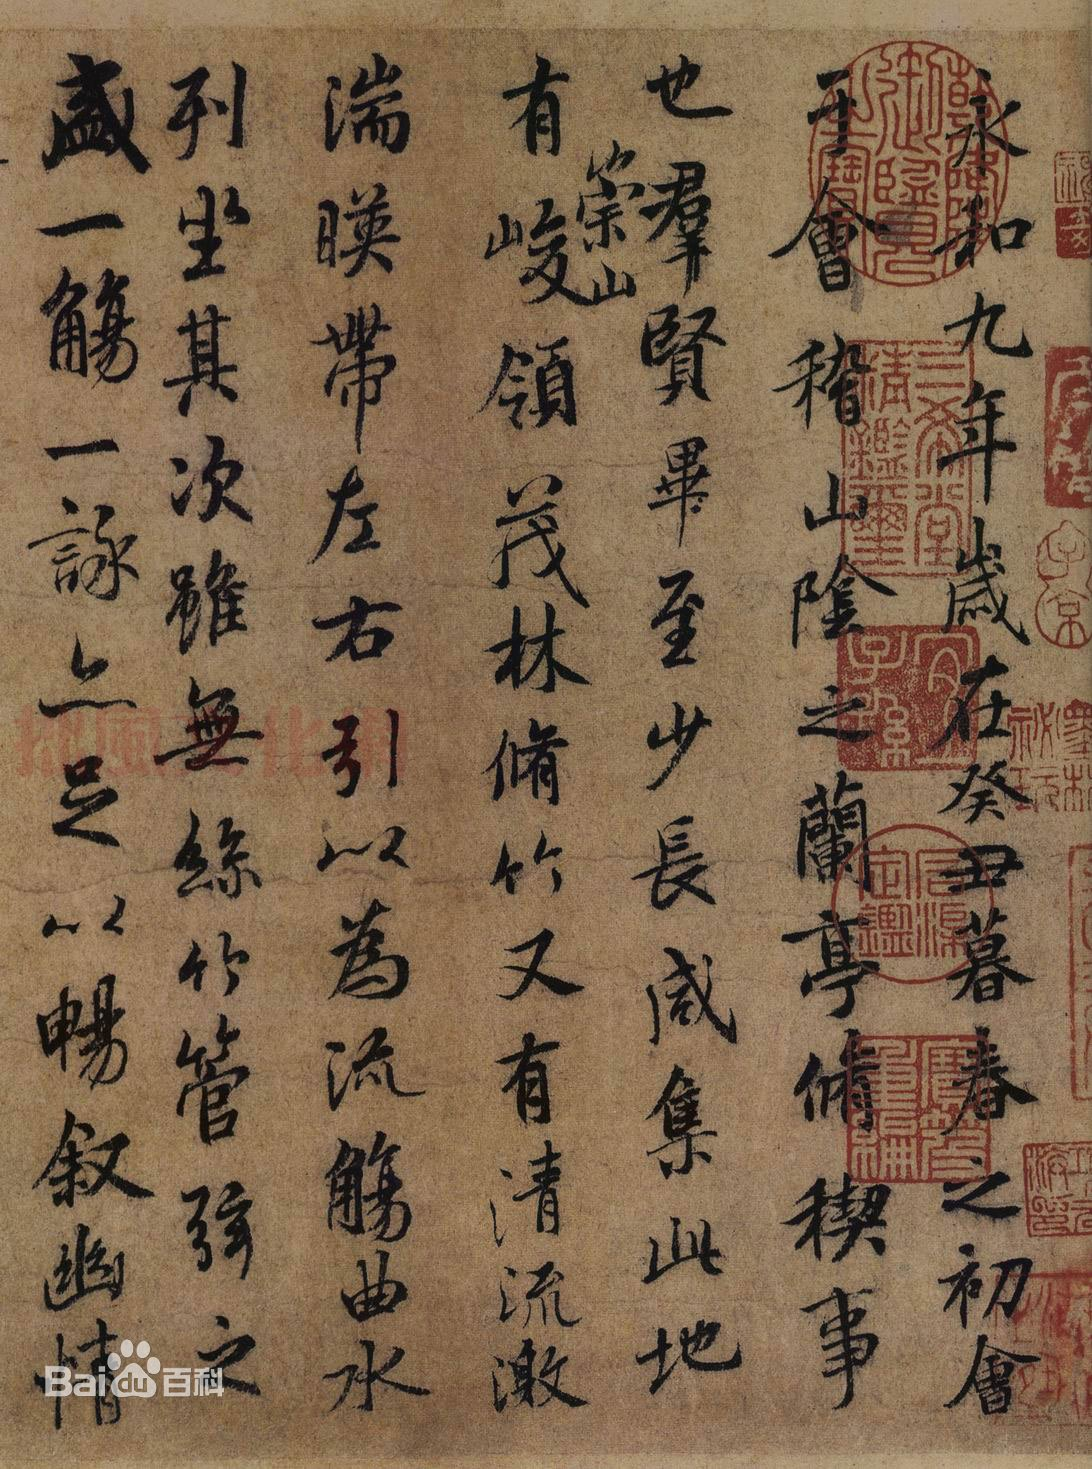 永和九年歲在癸丑暮春之初會
于會稽山陰之蘭亭脩稧事
也羣賢畢至少長咸集此地
有崇山峻領茂林脩竹又有清流激
湍暎帶左右引以為流觴曲水
列坐其次雖無絲竹管弦之
盛一觴一詠亦足以暢敘幽情
三希堂精鑑璽
宜子孫
Bai百科